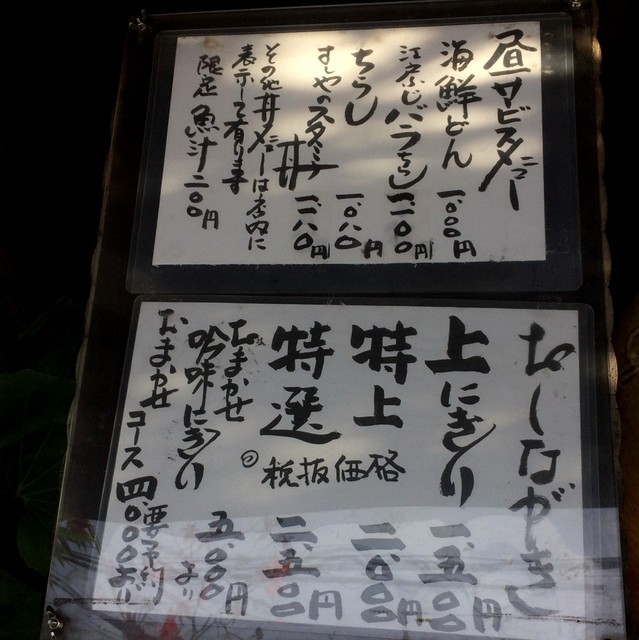 昼サービスメニュー
海鮮どん 一.〇〇〇円
江戸ふじバラちらし 一.一〇〇円
ちらし 一.〇八〇円
すしやのスタミナ丼 一.一八〇円
その他丼メニューは店内に
表示して有ります
限定 魚汁 二〇〇円
おしながき
上にぎり 一.五〇〇円
特上 二.〇〇〇円
特選 二.五〇〇円
税抜価格
おまかせ
吟味にぎり 五.〇〇〇円より
おまかせコース 四.〇〇〇より 要予約